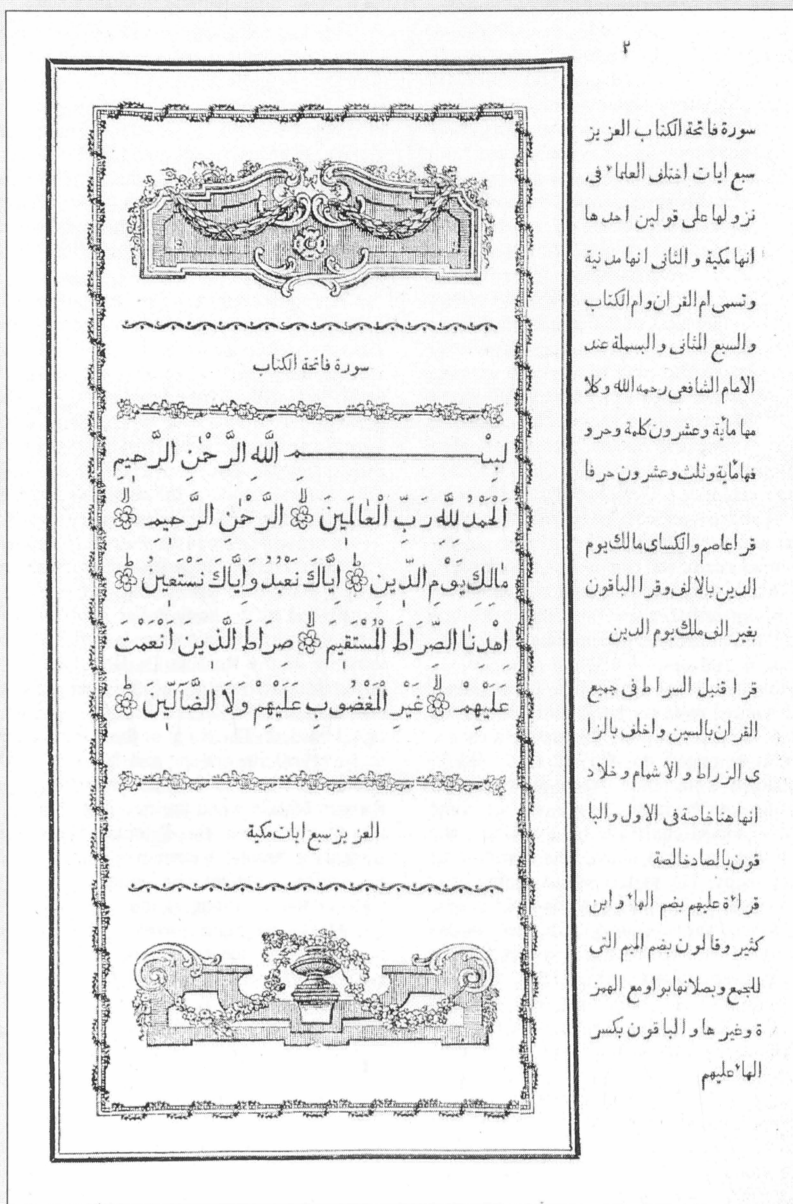 ٢
سورة فاتحة الكتاب
لبِسْــــــــــمِ اللَّهِ الرَّحْمٰنِ الرَّحِيمِ
اَلْحَمْدُ لِلَّهِ رَبِّ الْعٰالَمِينَ ۞ الرَّحْمٰنِ الرَّحِيمِ ۞
مٰالِكِ يَوْمِ الدِّينِ ۞ اِيَّاكَ نَعْبُدُ وَاِيَّاكَ نَسْتَعِينُ ۞
اِهْدِنَا الصِّرَاطَ الْمُسْتَقِيمَ ۞ صِرَاطَ الَّذِينَ اَنْعَمْتَ
عَلَيْهِمْ ۞ غَيْرِ الْمَغْضُوبِ عَلَيْهِمْ وَلَا الضَّالِّينَ ۞
العزيز سبع ايات مكية
سورة فاتحة الكتاب العزيز
سبع ايات اختلف العلماء فى
نزولها على قولين احدها
انها مكية والثانى انها مدنية
وتسمى ام القران وام الكتاب
والسبع المثانى والبسملة عند
الامام الشافعى رحمه الله وكلا
مها مائة وعشرون كلمة وحرو
فها مائة وثلث وعشرون حرفا
قرا عاصم والكساى مالك يوم
الدين بالالف وقرا الباقون
بغير الف ملك يوم الدين
قرا قنبل السراط فى جميع
القران بالسين واخلف بالزا
ى الزراط والاشمام وخلاد
انها هنا خاصة فى الاول والبا
قون بالصاد خالصة
قراءة عليهم بضم الهاء وابن
كثير وقالون بضم الميم التى
للجمع وبصلانها بواو مع الهمز
ة وغيرها والباقون بكسر
الهاء عليهم